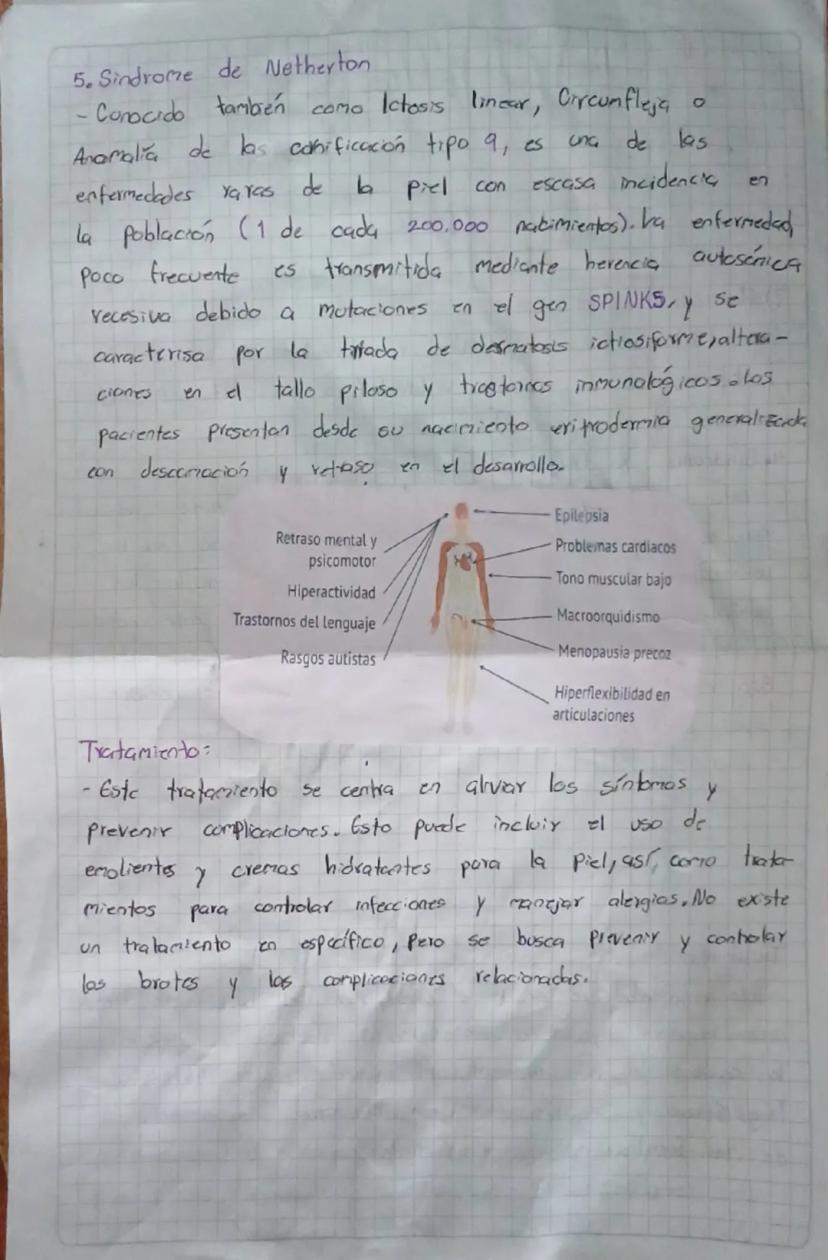 5. Sindrome de Netherton
- Conocido también como Ictosis linear, Circunfleja o
Anomalía de las cornificación tipo 9, es una de las
enfermedades raras de la piel con escasa incidencia en
la población (1 de cada 200.000 nacimientos). La enfermedad
poco frecuente es transmitida mediante herencia autosómica
recesiva debido a mutaciones en el gen SPINK5, y se
caracterisa por la triada de desmatosis ictiosiforme, altera-
ciones en el tallo piloso y trastornos inmunológicos. Los
pacientes presentan desde su nacimiento eritrodermia generalizada
con descamación y retraso en el desarrollo.
Retraso mental y
psicomotor
Hiperactividad
Trastornos del lenguaje
Rasgos autistas
Epilepsia
Problemas cardiacos
Tono muscular bajo
Macroorquidismo
Menopausia precoz
Hiperflexibilidad en
articulaciones
Tratamiento:
- Este tratamiento se centra en aliviar los síntomas y
prevenir complicaciones. Esto puede incluir el uso de
emolientes y cremas hidratantes para la piel, así, como trata-
mientos para controlar infecciones y manejar alergias. No existe
un tratamiento en específico, pero se busca prevenir y controlar
los brotes y las complicaciones relacionadas.